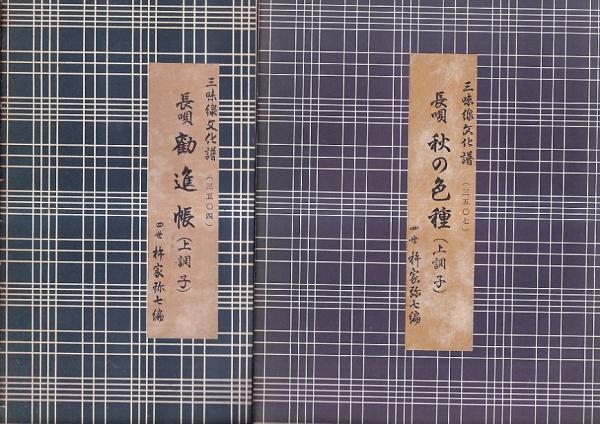 三味線文化譜
(三五〇四)
長唄 勧進帳(上調子)
四世 杵家弥七編
三味線文化譜
(三五〇七)
長唄 秋の色種(上調子)
四世 杵家弥七編